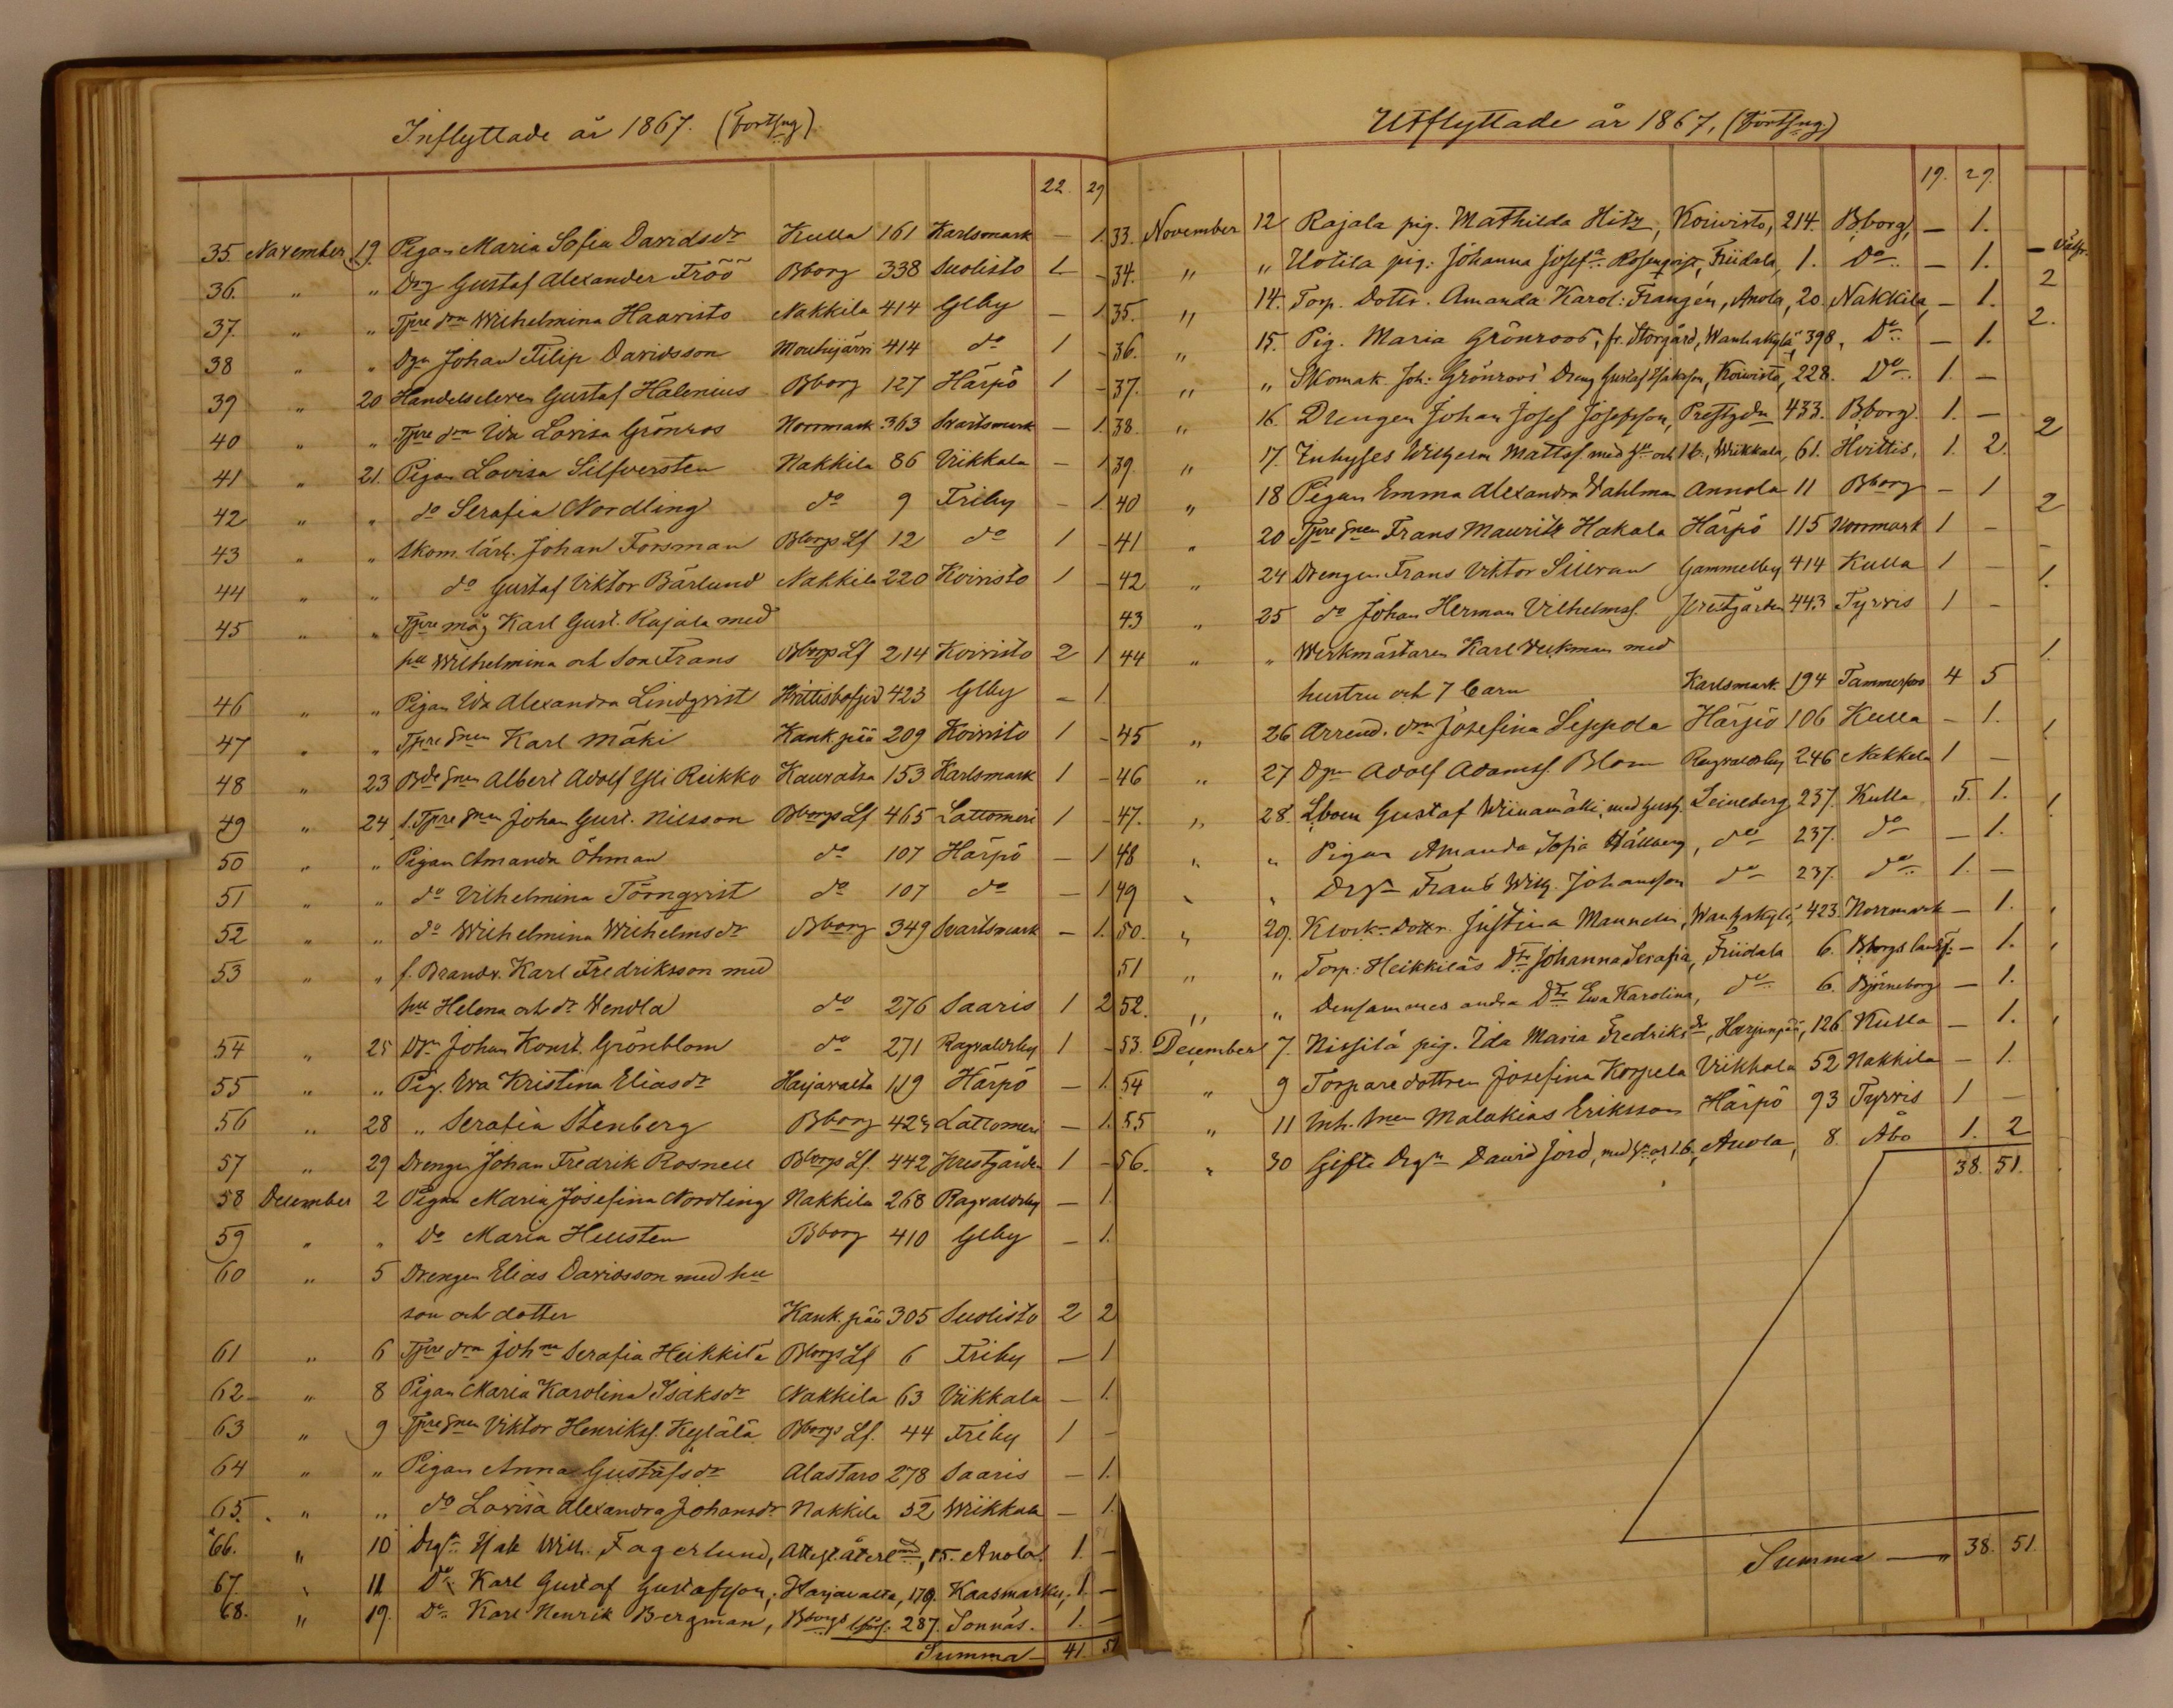 Inflyttade år 1867. (Fortsng)
22. 29
35 November 19. Pigan Maria Sofia Davidsdr Kulla 161 Karlsmark — 1.
36. " " Drg Gustaf Alexander Fröö Bborg 338 Suolisto 1 –
37. " " Tpre drn Wilhelmina Haavisto Nakkila 414 Glby — 1
38 " " Dgn Johan Filip Davidsson Mouhijärvi 414 do 1 –
39 " 20 Handelseleven Gustaf Halenius Bborg 127 Härpö 1 –
40 " " Tpre drn Ida Lovisa Grönros Norrmark 363 Svartsmark — 1.
41 " 21. Pigan Lovisa Silfversten Nakkila 86 Viikkala — 1
42 " " do Serafia Nordling do 9 Friby – 1
43 " " Skom. lärl. Johan Forsman Bborgs Lf 12 do 1 –
44 " " do Gustaf Viktor Bärlund Nakkila 220 Koivisto 1 –
45 " " Tpre måg Karl Gust. Rajala med
hu Wilhelmina och son Frans Bborgs Lf 214 Koivisto 2 1
46 " " Pigan Ida Alexandra Lindqvist Hvittisbofjerd 423 Glby – 1
47 " " Tpre snen Karl Mäki Kank.pää 209 Koivisto 1 –
48 " 23 Bde snen Albert Adolf Yli Reikko Kauvatsa 153 Karlsmark 1 –
49 " 24 f. Tpre snen Johan Gust. Nilsson Bborgs Lf 465 Lattomeri 1 –
50 " " Pigan Amanda Öhman do 107 Härpö — 1
51 " " do Vilhelmina Törnqvist do 107 do — 1
52 " " do Wilhelmina Wilhelmsdr Bborg 349 Svartsmark — 1.
53 " " f. Brandv. Karl Fredriksson med
hu Helena och dr Vendla do 276 Saaris 1 2
54 " 25 Dgn Johan Konst. Grönblom do 271 Ragvaldsby 1 –
55 " " Pig. Eva Kristina Eliasdr Harjavalta 119 Härpö — 1.
56 " 28 " Serafia Stenberg Bborg 429 Lattomeri — 1.
57 " 29 Drengen Johan Fredrik Rosnell Bborgs Lf. 442 Prestgården 1 –
58 December 2 Pigan Maria Josefina Nordling Nakkila 268 Ragvaldsby — 1.
59 " " Do Maria Hellsten Bborg 410 Glby — 1.
60 " 5 Drengen Elias Davidsson med hu
son och dotter Kank.pää 305 Suolisto 2 2
61 " 6 Tpre drn Johna Serafia Heikkilä Bborgs Lf 6 Friby — 1
62 " 8 Pigan Maria Karolina Isaksdr Nakkila 63 Viikkala — 1.
63 " 9 Tpre snen Viktor Henrikss. Kylälä Bborgs Lf. 44 Friby 1 –
64 " " Pigan Anna Gustafsdr Alastaro 278 Saaris — 1.
65. " " do Lovisa Alexandra Johansdr Nakkila 52 Wiikkala — 1.
66. " 10 Drgn Isak Wilh. Fagerlund, Attest återlnd, 15. Anola. 1. –
67. " 11 Do Karl Gustaf Gustafsson, Harjavalta, 179. Kaasmarkku, 1. –
68. " 19. Do Karl Henrik Bergman, Bborgs 287. Sonnäs. 1. –
Summa — 41. 51
Utflyttade år 1867, (Fortsng.)
19. 29.
33. November 12 Rajala pig. Mathilda Hitz, Koivisto, 214. Bborg, — 1.
34. " " Uotila pig: Johanna Josefa Rosenqvist, Friidala, 1. Do — 1.
35. " 14. Torp. Dottr. Amanda Karol: Franzén, Anola, 20. Nakkila, — 1.
36. " 15. Pig. Maria Grönroos, fr. Storgård, Wanhakylä, 398, Do — 1.
37. " " Skomak. Joh: Grönroos' Dreng Gustaf Isaksson, Koivisto, 228. Do 1. —
38. " 16. Drengen Johan Josef Josefsson, Prestgdn 433. Bborg. 1. —
39. " 17. Inhyses Wilhelm Mattss. med Hu och 1 b., Wiikkala, 61. Hvittis, 1. 2.
40 " 18 Pigan Emma Alexandra Dahlman Annola 11 Bborg – 1
41 " 20 Tpre snen Frans Mauritz Hakala Härpö 115 Norrmark 1 –
42 " 24 Drengen Frans Viktor Sillvan Gammelby 414 Kulla 1 –
43 " 25 do Johan Herman Vilhelmss. Prestgården 443 Tyrvis 1 –
44 " " Werkmästaren Karl Veckman med
hustru och 7 barn Karlsmark. 194 Tammerfors 4 5
45 " 26 Arrend. drn Josefina Seppola Härpö 106 Kulla – 1.
46 " 27 Dgn Adolf Adamss. Blom Ragvaldsby 246 Nakkila 1 —
47. " 28. Lboen Gustaf Wiinamäki, med husf. Leineberg 237. Kulla 5. 1.
48 " " Pigan Amanda Sofia Hällberg, do 237. do — 1.
49 " " Drgn Frans Wilh. Johansson do 237. do 1. —
50. " 29. Klock-Dottr. Justina Mannelin, Wanhakylä, 423. Norrmark — 1.
51 " " Torp: Heikkiläs Dtr Johanna Serafia, Friidala 6. Bborgs landsf. — 1.
52. " " Densammes andra Dtr Eva Karolina, do 6. Björneborg — 1.
53. December 7. Nissilä pig. Ida Maria Fredriksdr, Harjunpää, 126. Kulla — 1.
54 " 9 Torparedottren Josefina Korpela Viikkala 52 Nakkila — 1.
55 " 11 Inh. snen Malakias Eriksson Härpö 93 Tyrvis 1 —
56. " 30 Gifte Drgn David Jord, med hu och 1 b., Anola, 8. Åbo 1. 2
38. 51.
Summa — " 38. 51.
2
2.
2
2
–
1.
1.